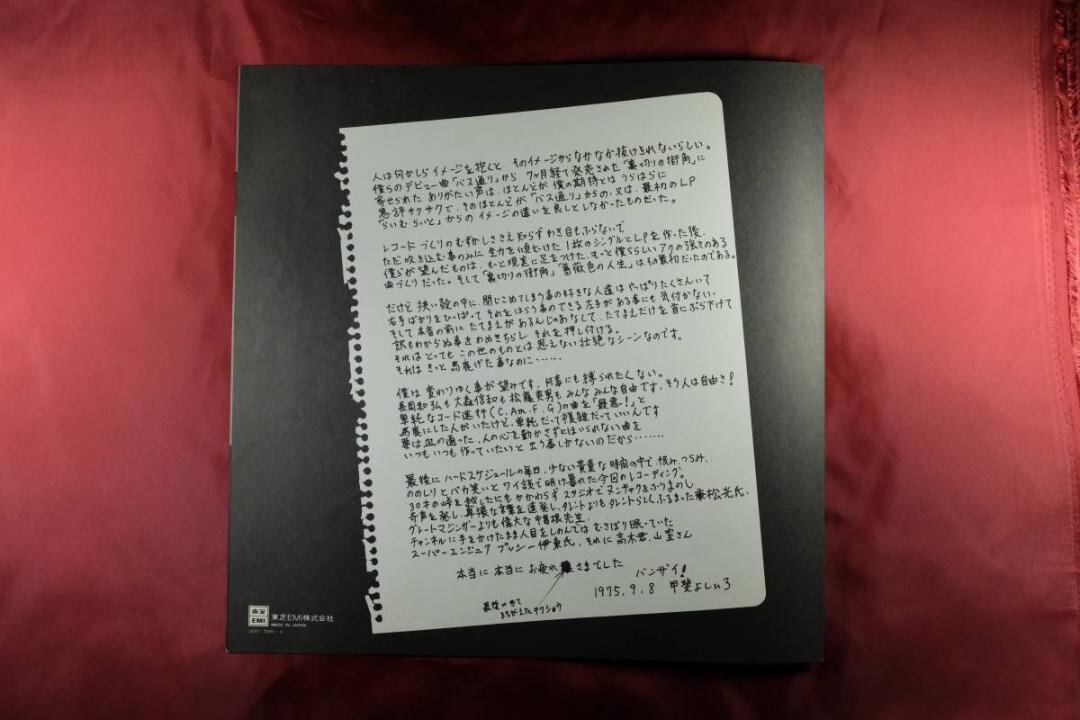 人は何かしらイメージを抱くと そのイメージからなかなか抜けきれないらしい。
僕らのデビュー曲「バス通り」から 7ヶ月経て発売された「裏切りの街角」に
寄せられた ありがたい声は、ほとんどが 僕の期待とは うらはらに
悪評サクサクで、そのほとんどが「バス通り」からの、又は、最初のLP
「らいむらいと」からの イメージの違いを良しとしなかったものだった。
レコードづくりのむずかしささえ知らず わき目もふらないで
ただ吹き込む事のみに 全力を傾むけた 1枚のシングルとLPを作った後、
僕らが望んだものは、もっと現実に足をつけた、もっと僕ららしいアクの強さのある
曲づくりだった。そして「裏切りの街角」「薔薇色の人生」はその最初だったのである。
だけど 狭い殻の中に、閉じこめてしまう事の好きな人達は やっぱりたくさんいて
右手ばかりをひっぱって それをはらう事のできる左手がある事にも 気付かない、
そして本音の前に たてまえが あるんじゃあなくて、たてまえだけを首にぶら下げて
訳もわからぬ事を わめきちらし それを押し付ける。
それは とっても この世のものとは 思えない 壮絶なシーンなのです。
それは きっと 馬鹿げた事なのに・・・・・・
僕は 変わりゆく事が 望みです、何事にも縛られたくない。
長岡和弘も 大森信和も 松藤英男も みんな みんな自由です、そう人は自由さ!
単純なコード進行(C.Am.F.G)の曲を「最悪!」と
馬鹿にした人がいたけど、単純だって複雑だっていいんです
要は血の通った、人の心を動かさずにはいられない曲を
いつもいつも作っていたいと 云う事しかないのだから・・・・・・・
最後に ハードスケジュールの毎日、少ない貴重な時間の中で、恨み、つらみ、
ののしりと バカ笑いと ワイ談で明け暮れた 今回のレコーディング。
30才の峠を越したにもかかわらず スタジオで ヌンチャクをふりまわし
奇声を発し、卑猥な言葉を連発し、タレントよりもタレントらしくふるまった 兼松光氏、
グレートマジンガーよりも偉大な 中曽根先生、
チャンネルに手をかけたまま人目をしのんでは むさぼり眠っていた
スーパーエンジニア プッシー伊東氏、それに 高木君、山里さん
本当に 本当に お疲れ さまでした
バンザイ!
1975. 9. 8 甲斐よしひろ
最後に来て
まちがえたテクショウ
東芝
EMI
東芝EMI株式会社
MADE IN JAPAN